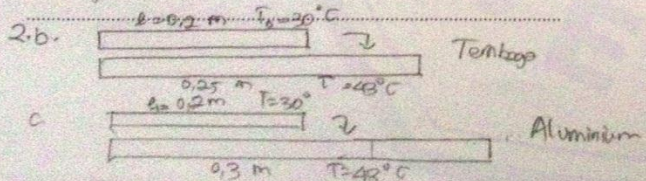 2.b. l=0,2 m T₀=30°C
Tembaga
0,25 m T=43°C
c l=0,2m T=30°
Aluminium
0,3 m T=43°C